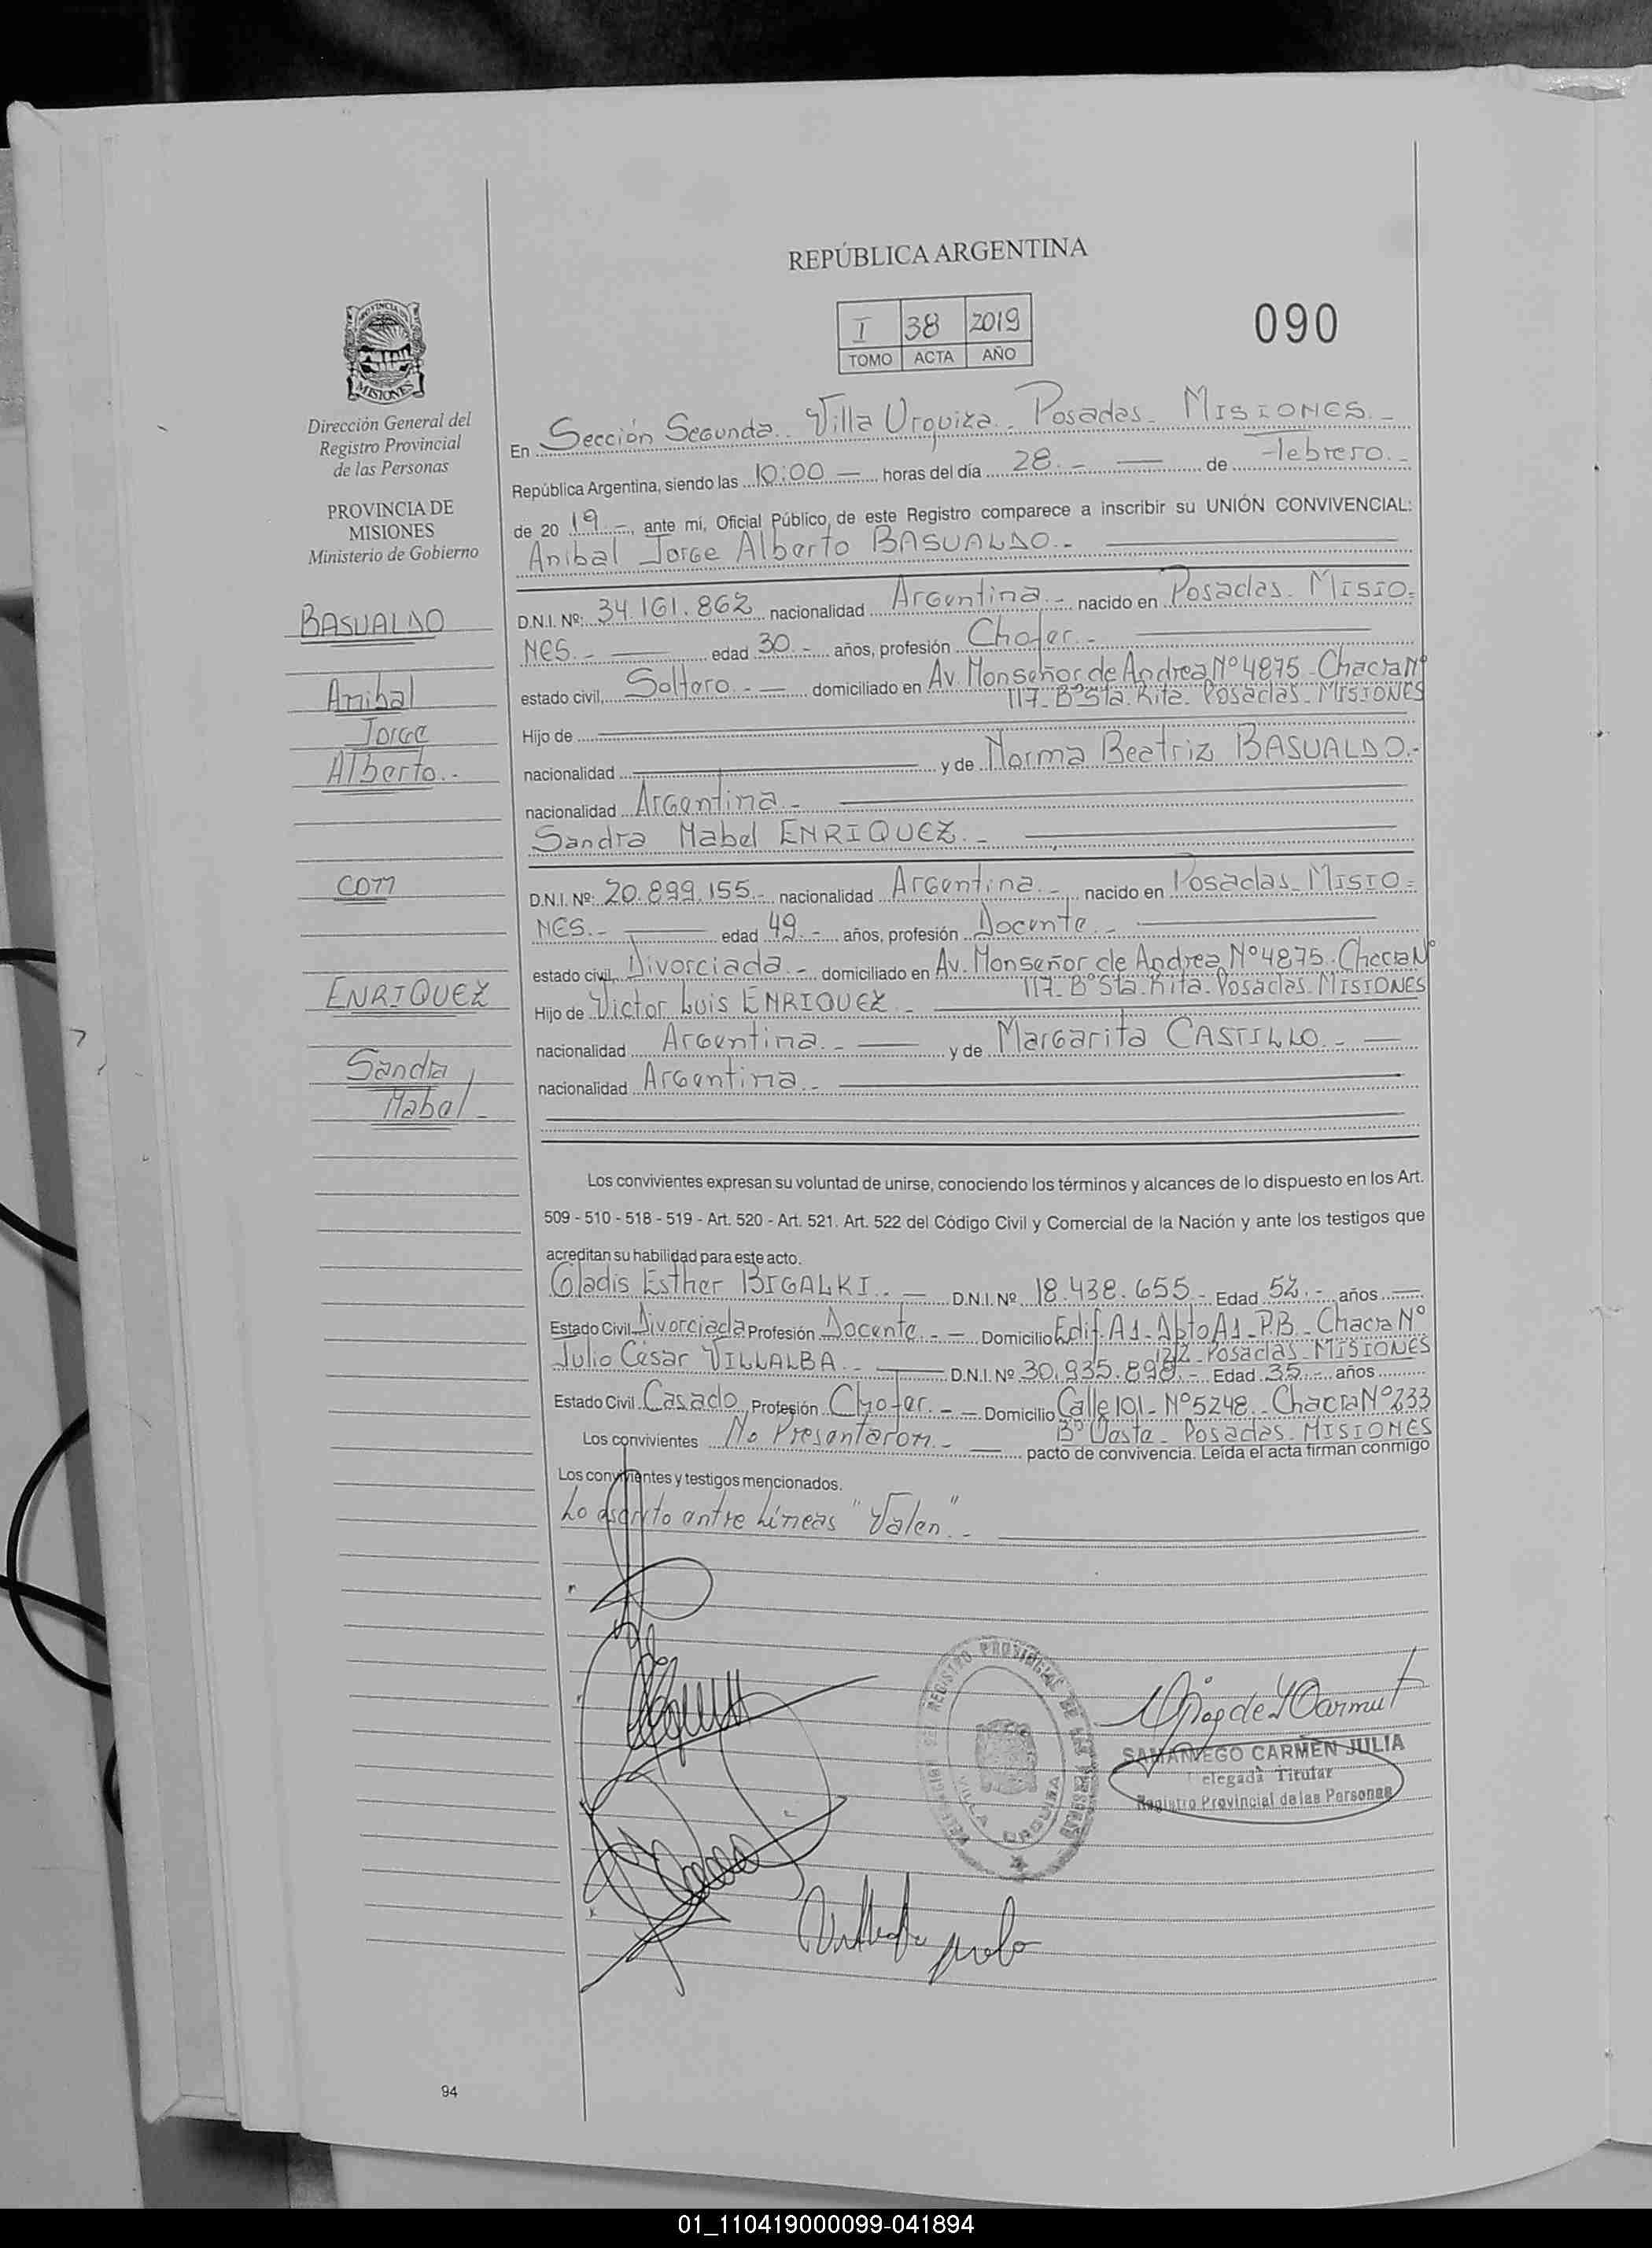 REPÚBLICA ARGENTINA
I 38 2019
TOMO ACTA AÑO
090
PROVINCIA DE
MISIONES
Dirección General del
Registro Provincial
de las Personas
PROVINCIA DE
MISIONES
Ministerio de Gobierno
BASUALDO
Anibal
Jorge
Alberto.-
con
ENRIQUEZ
Sandra
Mabel-
En Sección Segunda.. Villa Urquiza.- Posadas- MISIONES.-
República Argentina, siendo las 10:00 — horas del día 28.- — de Febrero.-
de 20 19.-, ante mí, Oficial Público, de este Registro comparece a inscribir su UNIÓN CONVIVENCIAL:
Anibal Jorge Alberto BASUALDO.-
D.N.I. Nº: 34.161.862 nacionalidad Argentina.- nacido en Posadas- MISIO=
NES.- — edad 30.- años, profesión Chofer.-
estado civil, Soltero.- — domiciliado en Av. Monseñor de Andrea Nº 4875- Chacra Nº
117- Bº Sta. Rita- Posadas- MISIONES
Hijo de
nacionalidad — y de Norma Beatriz BASUALDO.-
nacionalidad Argentina.-
Sandra Mabel ENRIQUEZ.-
D.N.I. Nº: 20.899.155.- nacionalidad Argentina.- nacido en Posadas- MISIO=
NES.- — edad 49.- años, profesión Docente.-
estado civil, Divorciada.- domiciliado en Av. Monseñor de Andrea Nº 4875- Chacra Nº
117- Bº Sta. Rita- Posadas- MISIONES
Hijo de Victor Luis ENRIQUEZ.-
nacionalidad Argentina.- — y de Margarita CASTILLO.- —
nacionalidad Argentina.-
Los convivientes expresan su voluntad de unirse, conociendo los términos y alcances de lo dispuesto en los Art.
509 - 510 - 518 - 519 - Art. 520 - Art. 521. Art. 522 del Código Civil y Comercial de la Nación y ante los testigos que
acreditan su habilidad para este acto.
Gladis Esther BIGALKI.- — D.N.I. Nº 18.438.655- Edad 52.- años —
Estado Civil Divorciada Profesión Docente.- — Domicilio Edif. A1- Dpto A1- P.B.- Chacra Nº
122- Posadas- MISIONES
Julio César VILLALBA.- — D.N.I. Nº 30.935.898.- Edad 35.- años
Estado Civil Casado Profesión Chofer.- — Domicilio Calle 101- Nº 5248- Chacra Nº 233
Bº - Posadas- MISIONES
Los convivientes No Presentaron.- — pacto de convivencia. Leída el acta firman conmigo
Los convivientes y testigos mencionados.
Lo escrito entre Líneas "Valen".-
DELEGACION DEL REGISTRO PROVINCIAL DE LAS PERSONAS
VILLA URQUIZA
SAMANIEGO CARMEN JULIA
Delegada Titular
Registro Provincial de las Personas
94
01_110419000099-041894